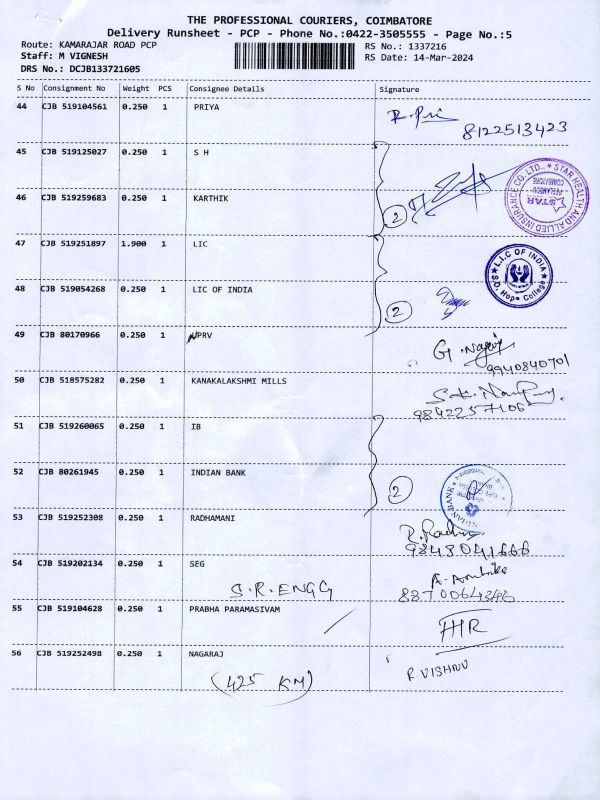 THE PROFESSIONAL COURIERS, COIMBATORE
Delivery Runsheet - PCP - Phone No.:0422-3505555 - Page No.:5
Route: KAMARAJAR ROAD PCP
RS No.: 1337216
Staff: M VIGNESH
RS Date: 14-Mar-2024
DRS No.: DCJB133721605
S No Consignment No Weight PCS Consignee Details Signature
44 CJB 519104561 0.250 1 PRIYA R. Pri
8122513423
45 CJB 519125027 0.250 1 S H
STAR HEALTH AND ALLIED INSURANCE CO. LTD.,
STAR
COIMBATORE
46 CJB 519259683 0.250 1 KARTHIK
2
47 CJB 519251897 1.900 1 LIC
L.I.C OF INDIA
S.O. Hope College
48 CJB 519054268 0.250 1 LIC OF INDIA
2
49 CJB 80170966 0.250 1 VPRV
9940840701
50 CJB 518575282 0.250 1 KANAKALAKSHMI MILLS
9842257106
51 CJB 519260065 0.250 1 IB
52 CJB 80261945 0.250 1 INDIAN BANK
2
INDIAN BANK
53 CJB 519252308 0.250 1 RADHAMANI
54 CJB 519202134 0.250 1 SEG
S.R.ENGG
55 CJB 519104628 0.250 1 PRABHA PARAMASIVAM
56 CJB 519252498 0.250 1 NAGARAJ
R VISHNU
(425 KM)